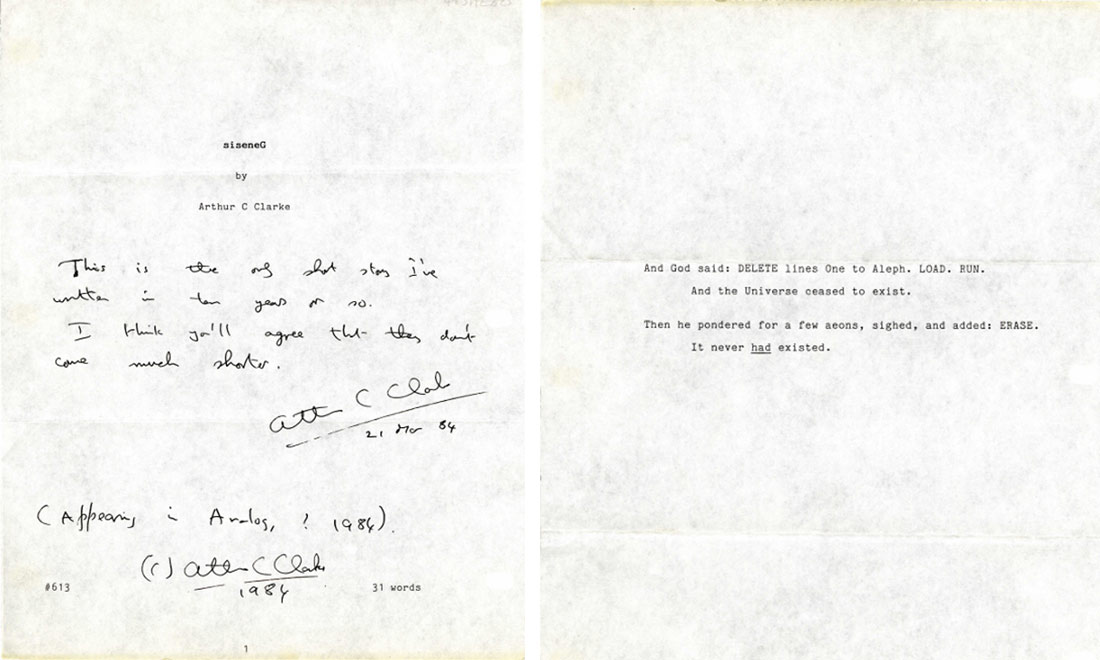 siseneG
by
Arthur C Clarke
This is the only short story I've
written in ten years or so.
I think you'll agree that they don't
come much shorter.
Arthur C Clarke
21 Mar 84
(Appearing in Analog, ? 1984).
(c) Arthur C Clarke
1984
#613 31 words
1
And God said: DELETE lines One to Aleph. LOAD. RUN.
And the Universe ceased to exist.
Then he pondered for a few aeons, sighed, and added: ERASE.
It never had existed.